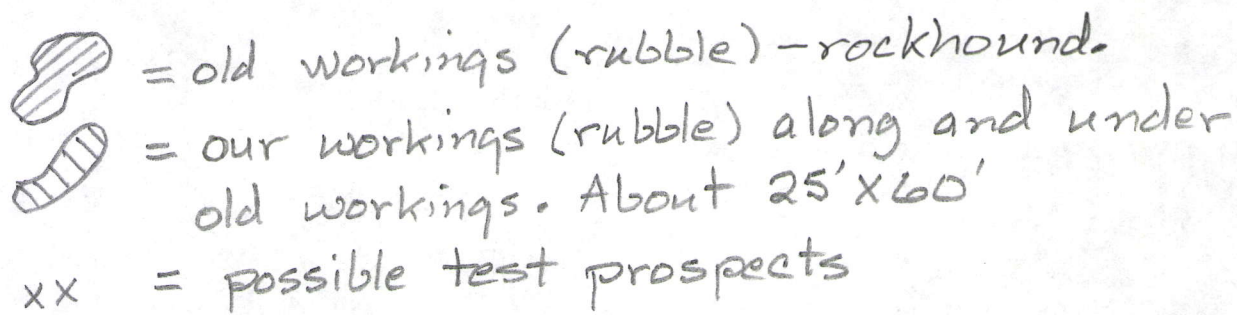 = old workings (rubble) - rockhound.
= our workings (rubble) along and under
old workings. About 25'x60'
xx = possible test prospects